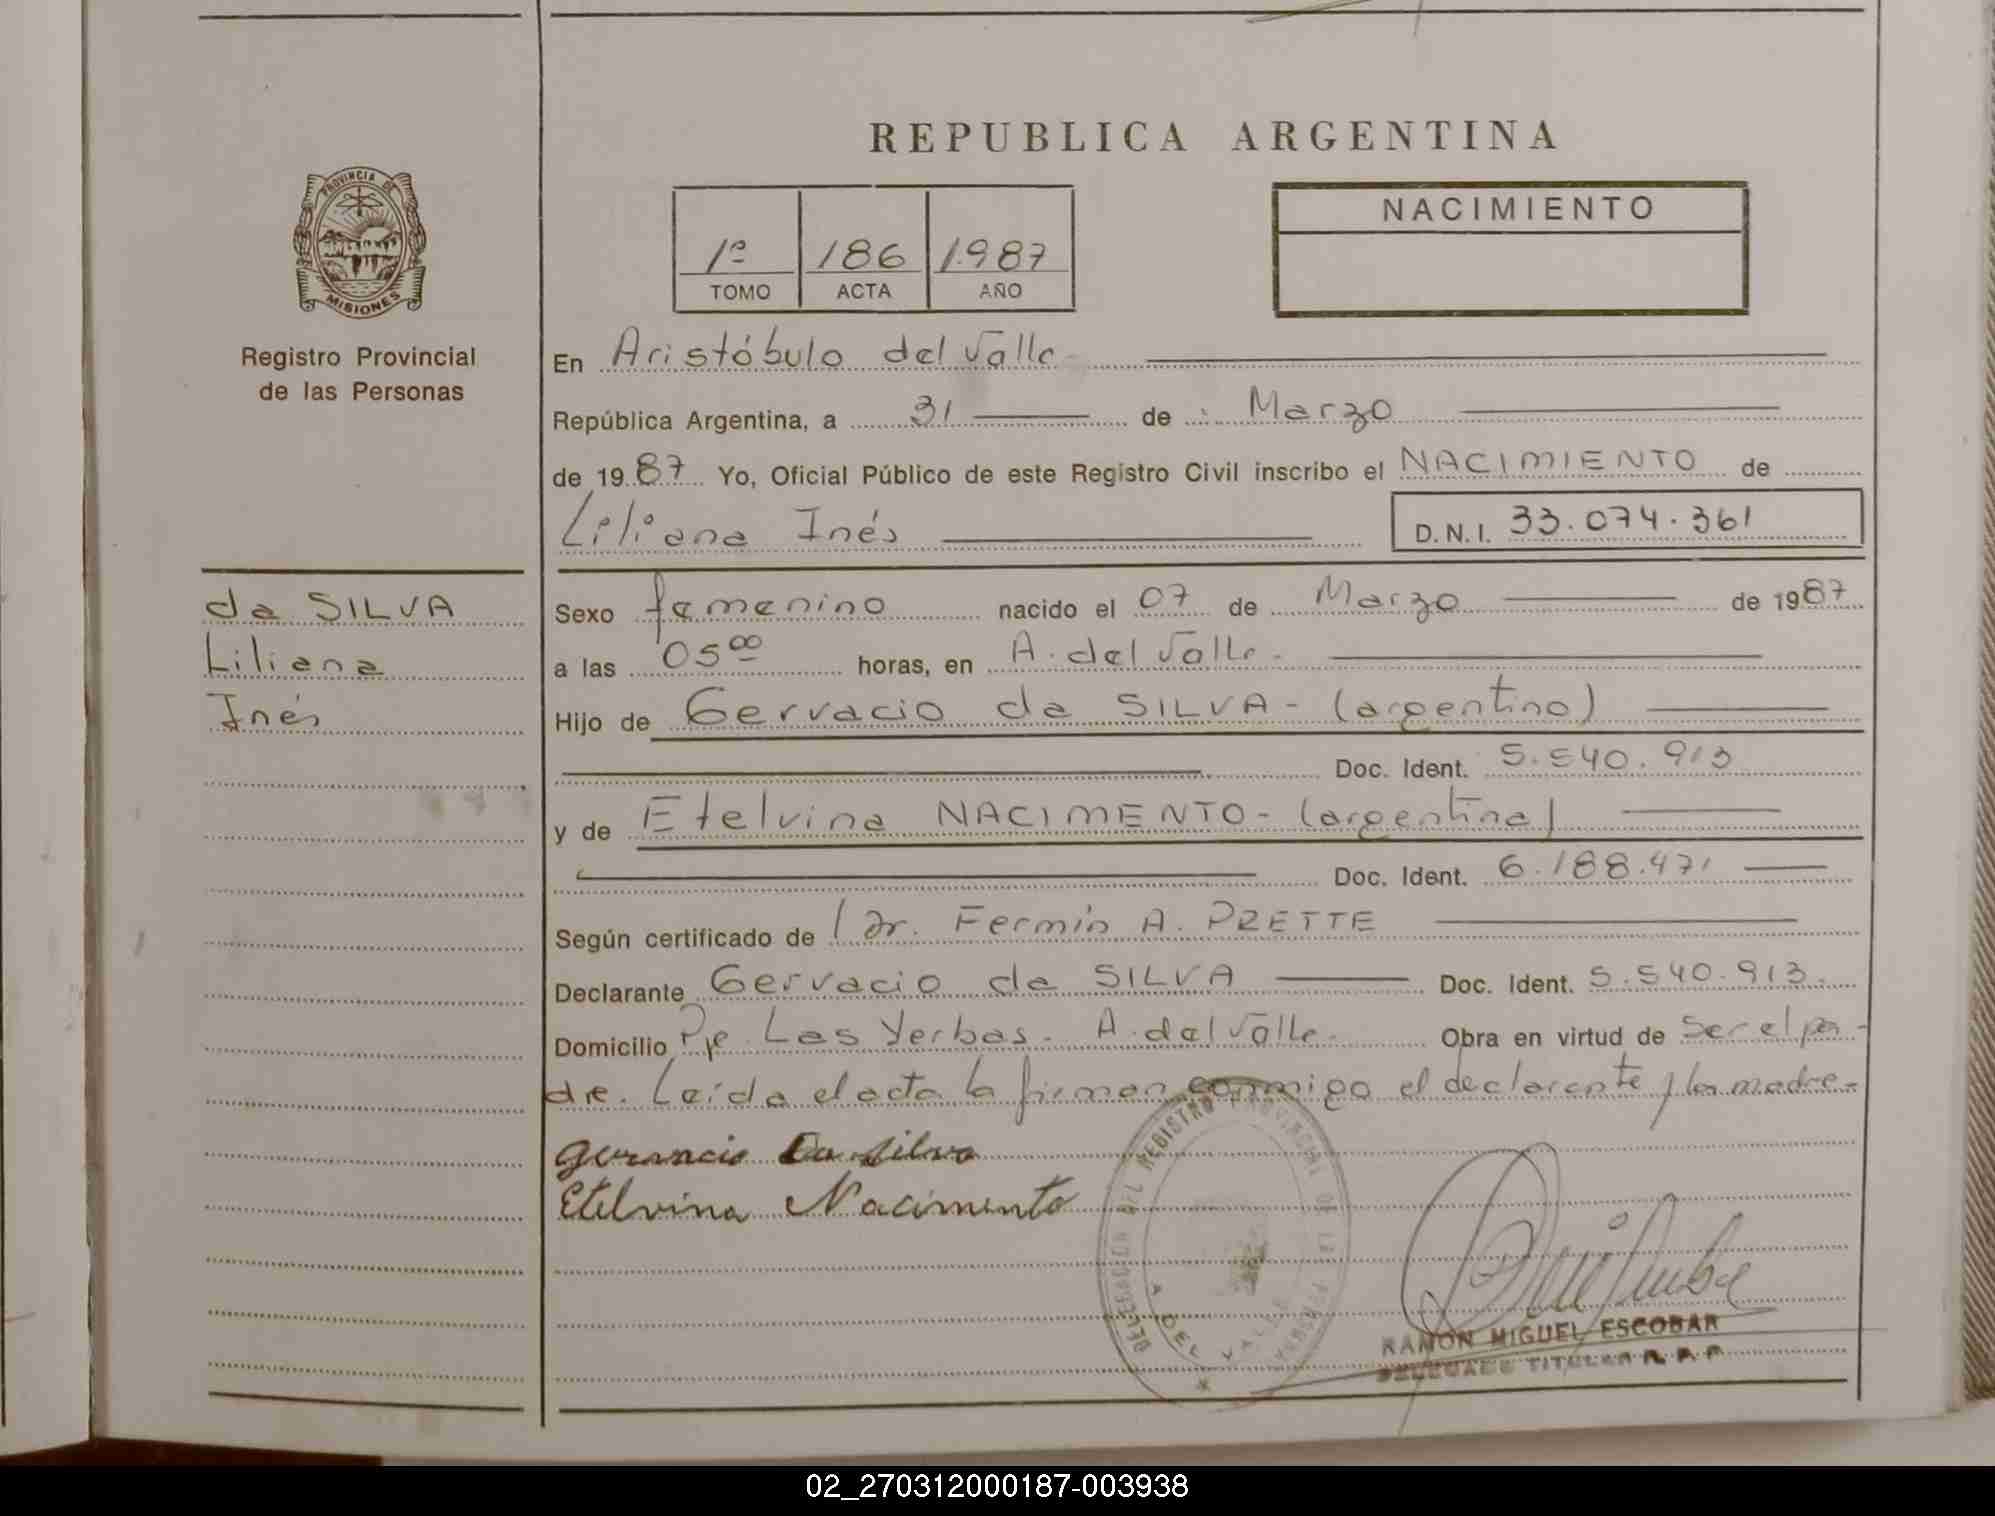 REPUBLICA ARGENTINA
PROVINCIA DE
MISIONES
Registro Provincial
de las Personas
1º 186 1.987
TOMO ACTA AÑO
NACIMIENTO
En Aristóbulo del Valle
República Argentina, a 31 de Marzo
de 1987 Yo, Oficial Público de este Registro Civil inscribo el NACIMIENTO de
Liliana Inés D.N.I. 33.074.361
da SILVA
Liliana
Inés
Sexo femenino nacido el 07 de Marzo de 1987
a las 05⁰⁰ horas, en A. del Valle.
Hijo de Gervacio da SILVA - (argentino)
Doc. Ident. 5.540.913
y de Etelvina NACIMENTO - (argentina)
Doc. Ident. 6.188.471
Según certificado de Dr. Fermín A. PRETTE
Declarante Gervacio da SILVA Doc. Ident. 5.540.913.
Domicilio Pje. Las Yerbas - A. del Valle. Obra en virtud de ser el pa-
dre. Leída el acta la firman conmigo el declarante y la madre.-
Etelvina Nacimento
DELEGACION DEL REGISTRO PROVINCIAL DE LA PERSONAS
A. DEL VALLE
RAMON MIGUEL ESCOBAR
DELEGADO TITULAR R. P. P.
02_270312000187-003938